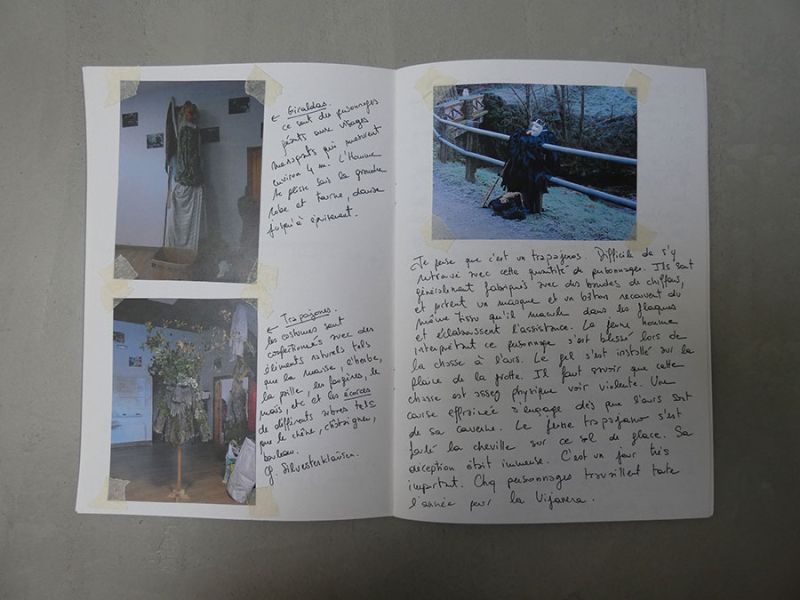 ← Giraldas.
ce sont des personnages
géants aux visages
transparents qui mesurent
environ 4 m. L'Homme
se glisse sous la grande
robe et tourne, danse
jusqu'à épuisement.
← Trapajones.
les costumes sont
confectionnés avec des
éléments naturels tels
que la mousse, l'herbe,
la paille, les fougères, le
maïs, etc et les écorces
de différents arbres tels
que le chêne, châtaignier,
bouleau.
Cf. Silvesterkläusen.
Je pense que c'est un trapajones. Difficile de s'y
retrouver avec cette quantité de personnages. Ils sont
généralement fabriqués avec des bandes de chiffons,
et portent un masque et un bâton recouvert du
même tissu qu'il dans les flaques
et éclaboussent l'assistance. Le jeune homme
interprétant ce personnage s'est blessé lors de
la chasse à l'ours. Le gel s'est installé sur la
plaine de la grotte. Il faut savoir que cette
chasse est assez physique voir violente. Une
course effrénée s'engage dès que l'ours sort
de sa caverne. Le jeune trapajono s'est
foulé la cheville sur ce sol de glace. Sa
déception était immense. C'est un jour très
important. Chq personnages travaillent toute
l'année pour la Vijanera.